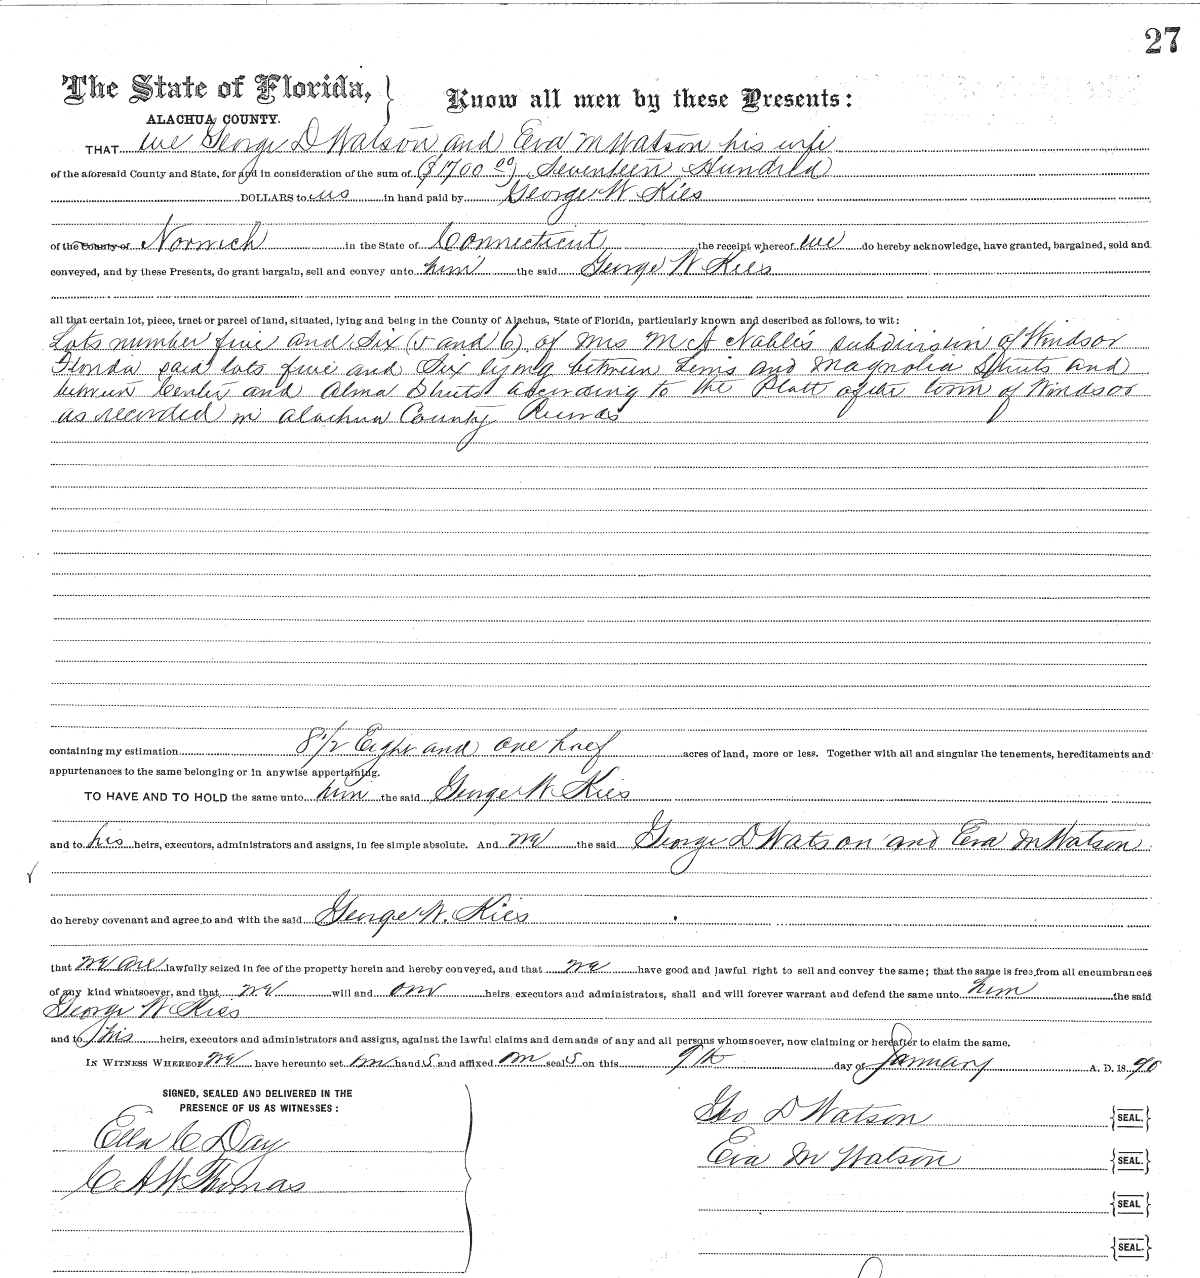 27
The State of Florida, } Know all men by these Presents:
ALACHUA COUNTY.
THAT we George D Watson and Eva M Watson his wife
of the aforesaid County and State, for and in consideration of the sum of ($1700 00) Seventeen Hundred
DOLLARS to us in hand paid by George W Kies
of the County of Norwich in the State of Connecticut, the receipt whereof we do hereby acknowledge, have granted, bargained, sold and
conveyed, and by these Presents, do grant bargain, sell and convey unto him the said George W Kies
all that certain lot, piece, tract or parcel of land, situated, lying and being in the County of Alachua, State of Florida, particularly known and described as follows, to wit:
Lots number five and Six (5 and 6) of Mrs M A subdivision of Windsor
Florida said lots five and Six lying between and Magnolia Streets and
between Center and Alma Streets according to the Platt of the town of Windsor
as recorded in Alachua County Records
containing my estimation 8 1/2 Eight and one half acres of land, more or less. Together with all and singular the tenements, hereditaments and
appurtenances to the same belonging or in anywise appertaining.
TO HAVE AND TO HOLD the same unto him the said George W Kies
and to his heirs, executors, administrators and assigns, in fee simple absolute. And we the said George D Watson and Eva M Watson
do hereby covenant and agree to and with the said George W. Kies
that we are lawfully seized in fee of the property herein and hereby conveyed, and that we have good and lawful right to sell and convey the same; that the same is free from all encumbrances
of any kind whatsoever, and that we will and our heirs executors and administrators, shall and will forever warrant and defend the same unto him the said
George W Kies
and to his heirs, executors and administrators and assigns, against the lawful claims and demands of any and all persons whomsoever, now claiming or hereafter to claim the same.
IN WITNESS WHEREOF we have hereunto set our hands and affixed our seals on this 9th day of January A. D. 1890
SIGNED, SEALED AND DELIVERED IN THE
PRESENCE OF US AS WITNESSES:
Geo D Watson {SEAL.}
Ella C Day
Eva M Watson {SEAL.}
C A W Thomas
{SEAL.}
{SEAL.}